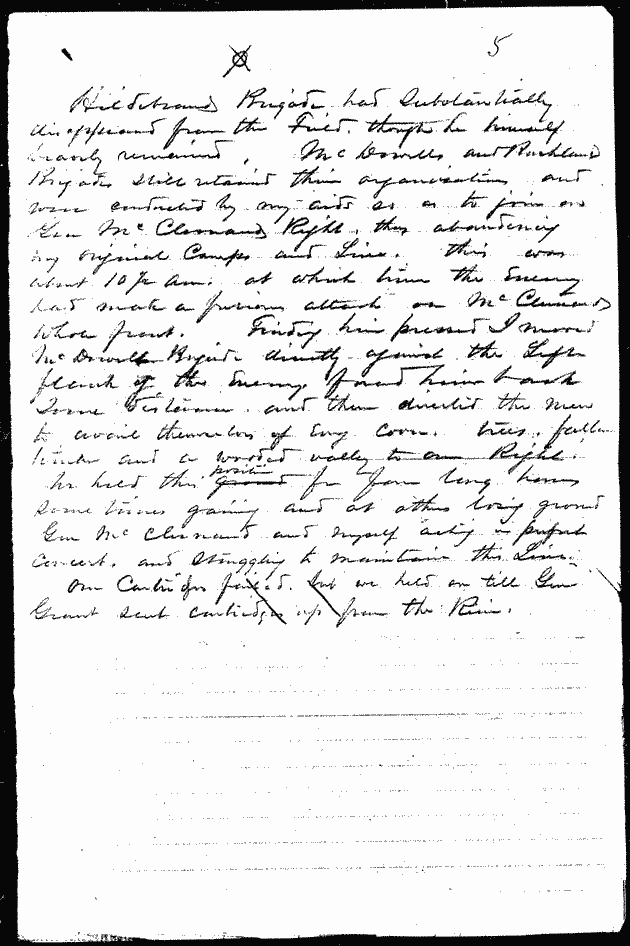 5
Hildebrands Brigade had Substantially
disappeared from the Field, though he himself
bravely remained. McDowells and Bucklands
Brigades still retained their organizations and
were conducted by my aids so as to join on
Gen McClernands Right, thus abandoning
my original Camps and Line. this was
about 10 1/2 am. at which time the Enemy
had made a furious attack on McClernands
whole front. Finding him pressed I moved
McDowells Brigade directly against the Left
flank of the Enemy forced him back
Some distance. and then directed the men
to avail themselves of Every Cover. trees, fallen
timber and a wooded valley to our Right.
We held this ground position for four long hours
sometimes gaining and at others losing ground
Gen McClernand and myself acting in perfect
concert, and struggling to maintain this Line.
Our Cartridges failed. but we held on till Gen
Grant sent cartridges up from the River.